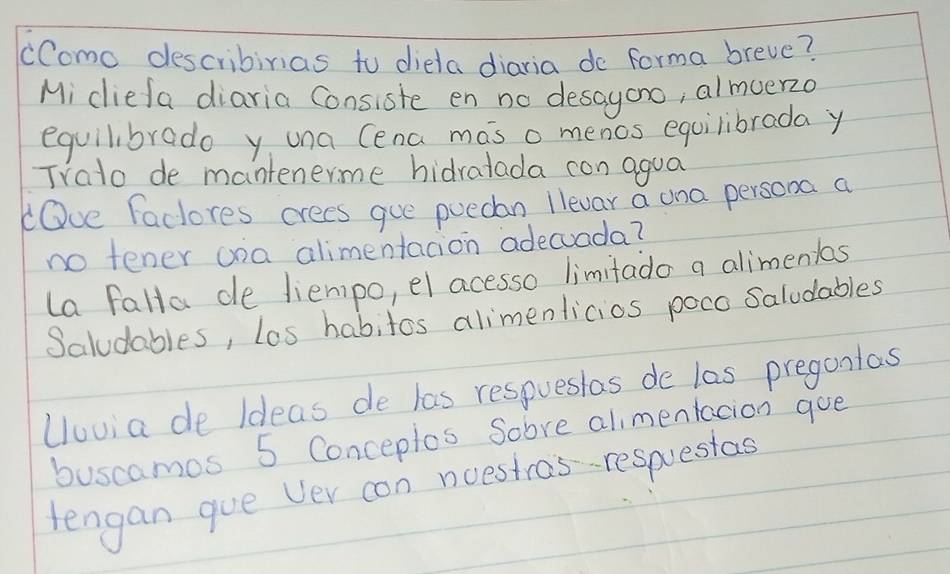 ¿Como describirias tu dieta diaria de forma breve?
Mi dieta diaria Consiste en no desayono, almuerzo
equilibrado y una Cena más o menos equilibrada y
Trato de mantenerme hidratada con agua
¿Que factores crees que puedan llevar a una persona a
no tener una alimentación adecuada?
La Falta de tiempo, el acesso limitado a alimentos
Saludables, Los habitos alimenticios poco Saludables
Lluvia de Ideas de las respuestas de las preguntas
buscamos 5 Conceptos Sobre alimentacion que
tengan que Ver con nuestras respuestas